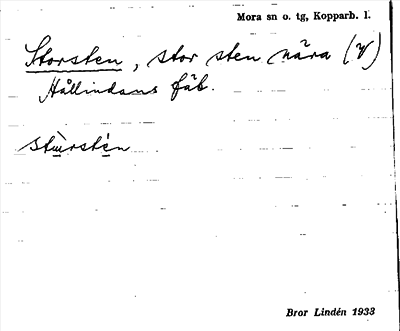 Mora sn o. tg, Kopparb. l.
Storsten, stor sten nära (V)
Hållindans fäb.
stùrstén
Bror Lindén 1933